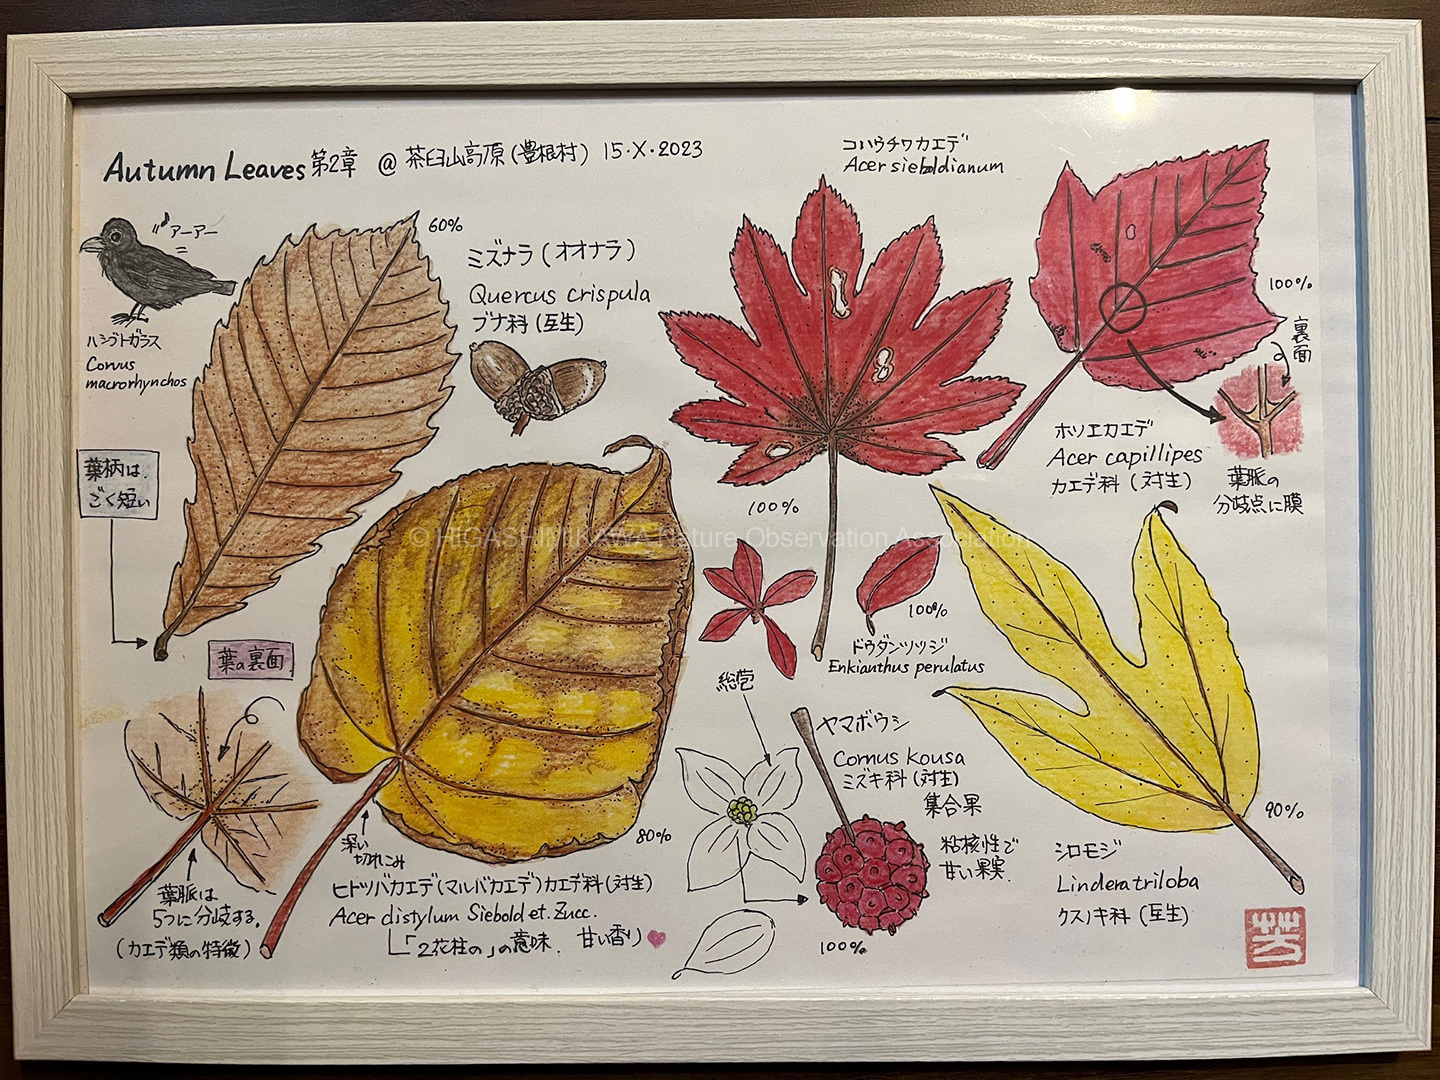 Autumn Leaves 第2章 @ 茶臼山高原(豊根村) 15・X・2023
アーアー
ハシブトガラス
Corvus
macrorhynchos
60%
ミズナラ(オオナラ)
Quercus crispula
ブナ科(互生)
コハウチワカエデ
Acer sieboldianum
100%
100%
裏面
ホソエカエデ
Acer capillipes
カエデ科(対生)
葉脈の
分岐点に膜
葉柄は、
ごく短い
© HIGASHIMIKAWA Nature Observation Association
100%
ドウダンツツジ
Enkianthus perulatus
葉の裏面
葉脈は
5つに分岐する。
(カエデ類の特徴)
深い
切れこみ
80%
ヒトツバカエデ(マルバカエデ)カエデ科(対生)
Acer distylum Siebold et. Zucc.
「2花柱の」の意味. 甘い香り
総苞
ヤマボウシ
Cornus kousa
ミズキ科(対生)
集合果
粘核性で
甘い果実.
100%
90%
シロモジ
Lindera triloba
クスノキ科(互生)
芳